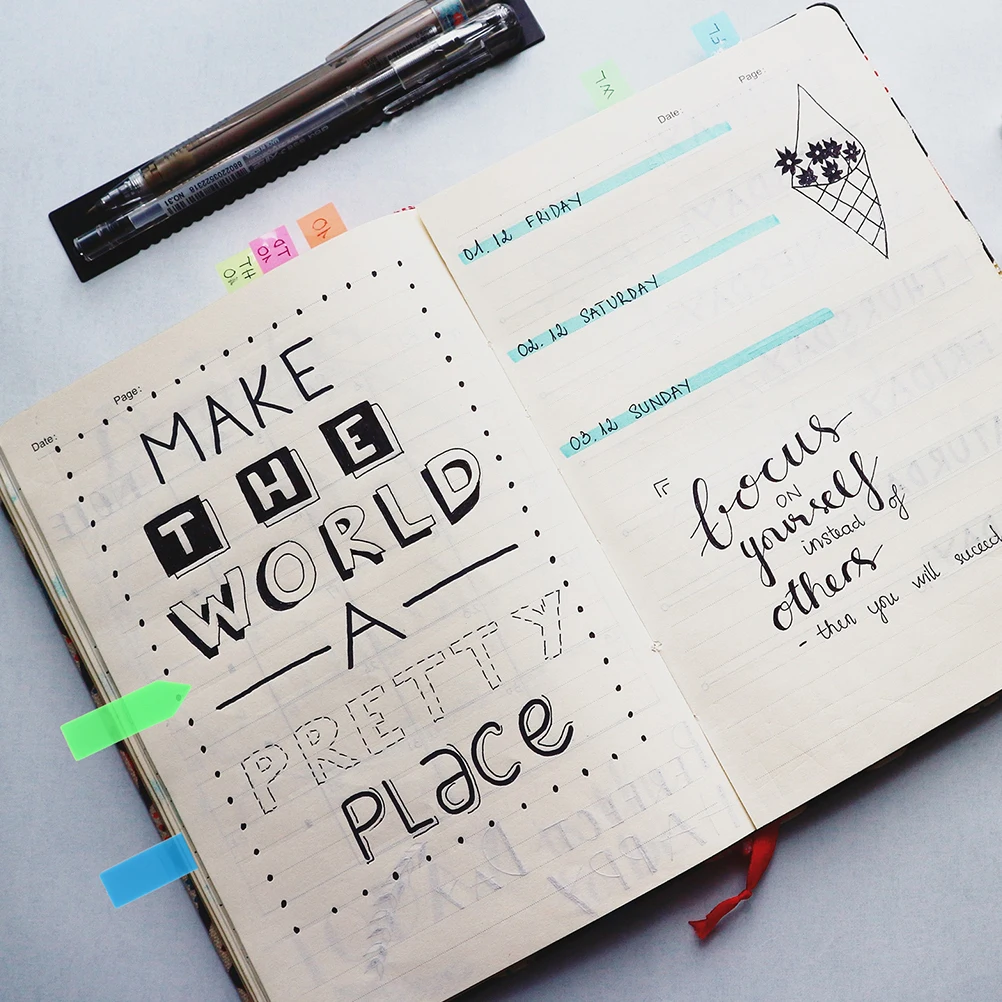 Date:
Page:
MAKE
THE
WORLD
A
PRETTY
PLace
Date:
Page:
01.12 FRiDAY
02.12 SATURDAY
03.12 SUNDAY
focus
ON
yourself
instead of
others
- then you will suceed
NO.31
8802203522318